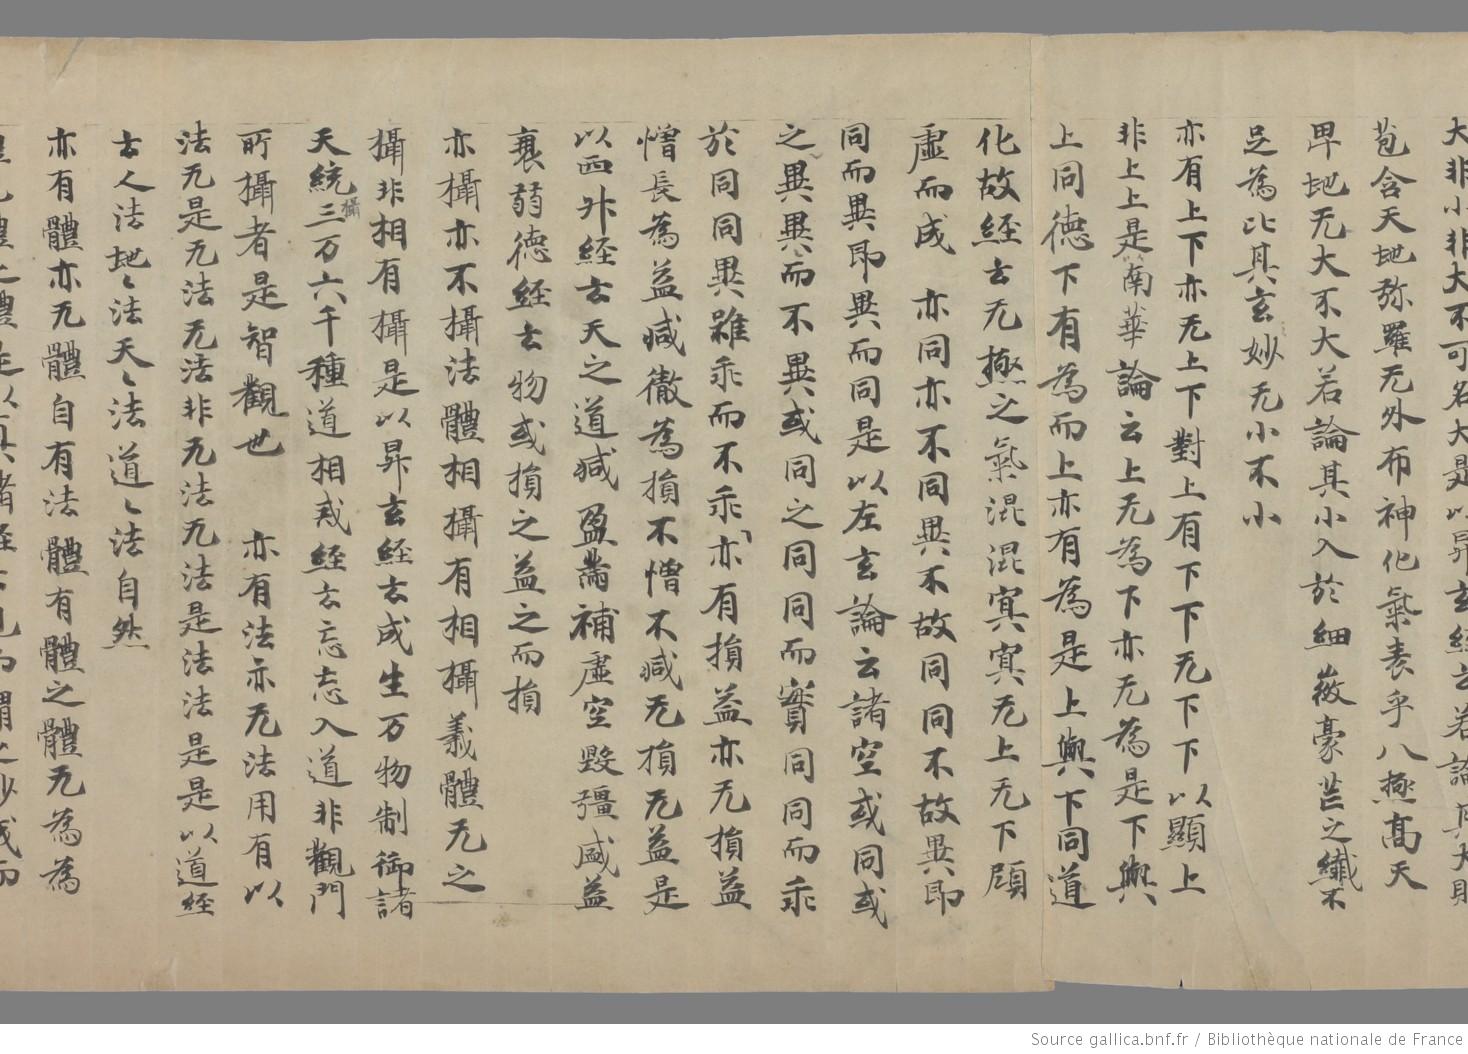 大非小非大不可名大是以昇玄經云若論其大則
苞含天地弥羅无外布神化氣表乎八極髙天
卑地无大不大若論其小入於細薇豪芒之纎不
足為比其玄妙无小不小
亦有上下亦无上下對上有下下无下下以顯上
非上上是南華論云上无為下亦无為是下與
上同德下有為而上亦有為是上與下同道
化故經云无極之氣混混㝠㝠无上无下顧
虛而成　亦同亦不同異不故同同不故異即
同而異即異而同是以左玄論云諸空或同或
之異異而不異或同之同同而實同同而乖
於同同異雖乖而不乖亦有損益亦无損益
憎長為益减徹為損不憎不减无損无益是
以西升經云天之道减盈㒼補虛空毀彊盛益
襄弱德經云物或損之益之而損
亦攝亦不攝法體相攝有相攝義體无之
攝非相有攝是以昇玄經云成生万物制御諸
天統攝三万六千種道相戒經云忘忘入道非觀門
所攝者是智觀也　亦有法亦无法用有以
法无是无法无法非无法无法是法法是是以道經
云人法地〻法天〻法道〻法自然
亦有體亦无體自有法體有體之體无為為